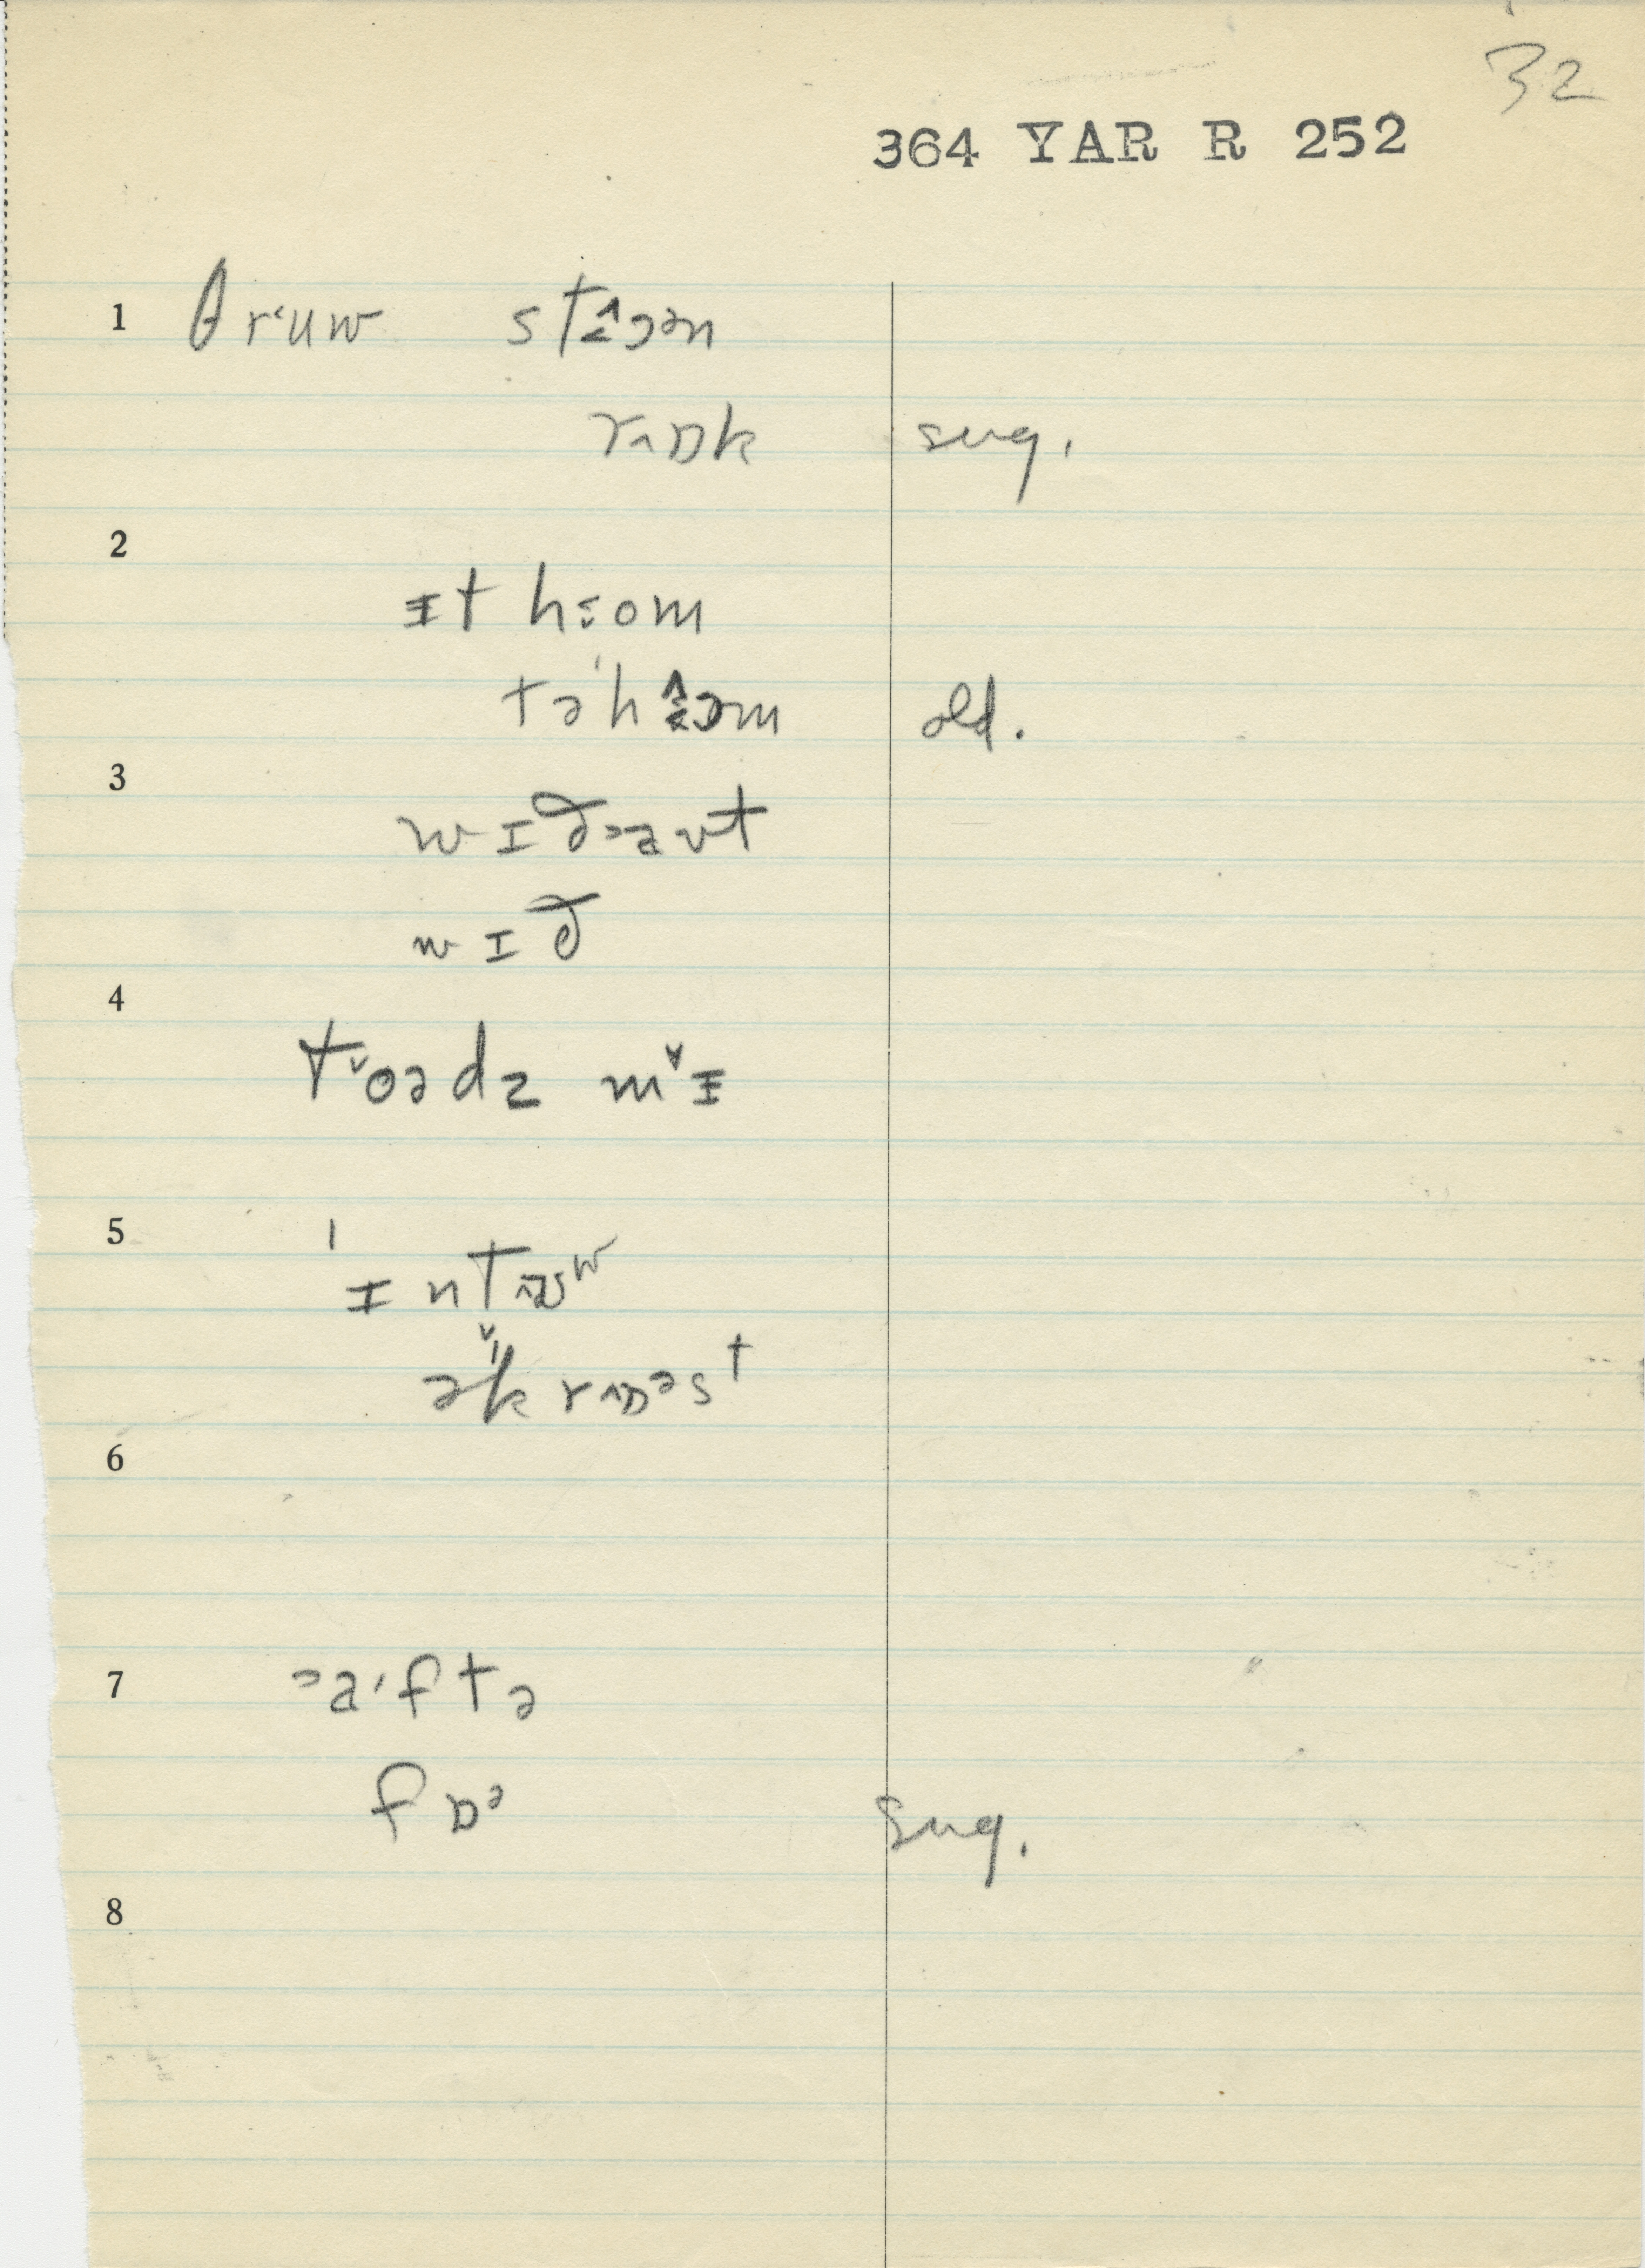 32
364 YAR R 252
1 θrʻuw stɔən
rɒk sug.
2
ɪt hom
təˈhɔm old.
3
wɪðavt
wɪð
4
toədz mɪ
5
ˈɪntʊʷ
əˈkrɒəst
6
7 aˑftə
fɒə sug.
8